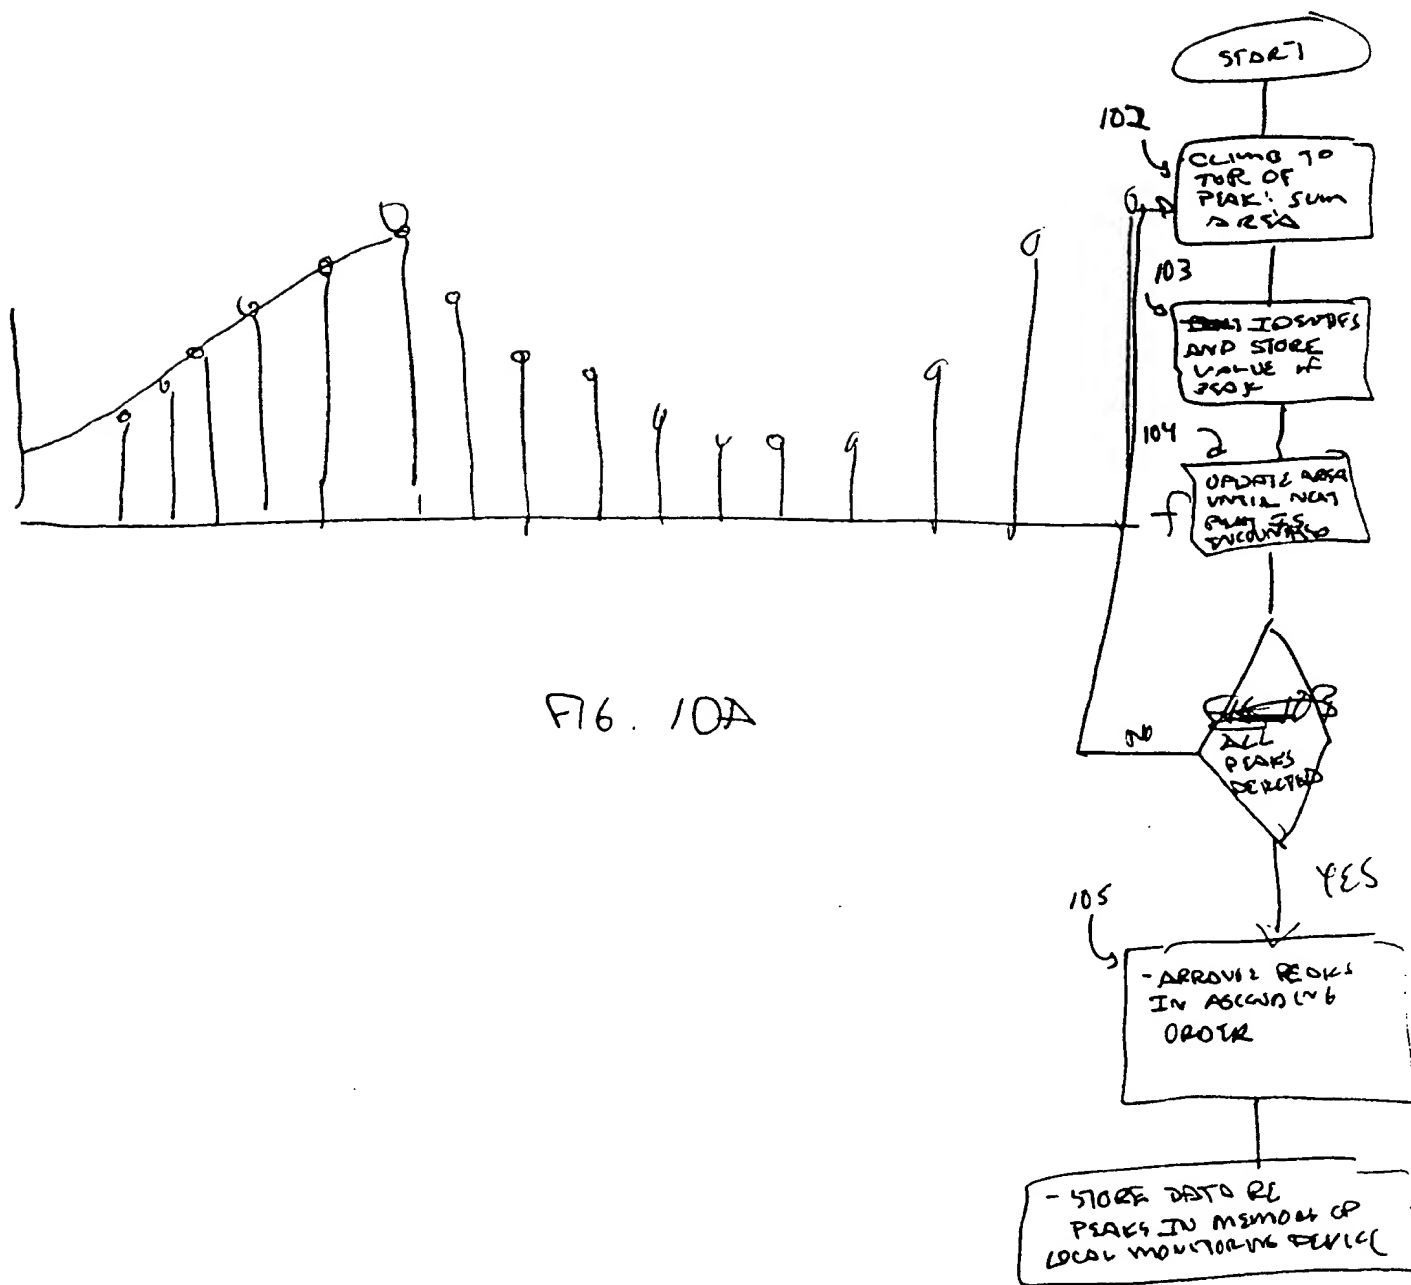 START
102
CLIMB TO
TOP OF
PEAK: SUM
AREA
103
IDENTIFS
AND STORE
VALUE of
PEAK
104
UPDATE AREA
UNTIL NEXT
PEAK IS
ENCOUNTERED
FIG. 10A
NO
ALL
PEAKS
DETECTED
YES
105
- ARRANGE PEAKS
IN ASCENDING
ORDER
- STORE DATA RE
PEAKS IN MEMORY OF
LOCAL MONITORING DEVICE